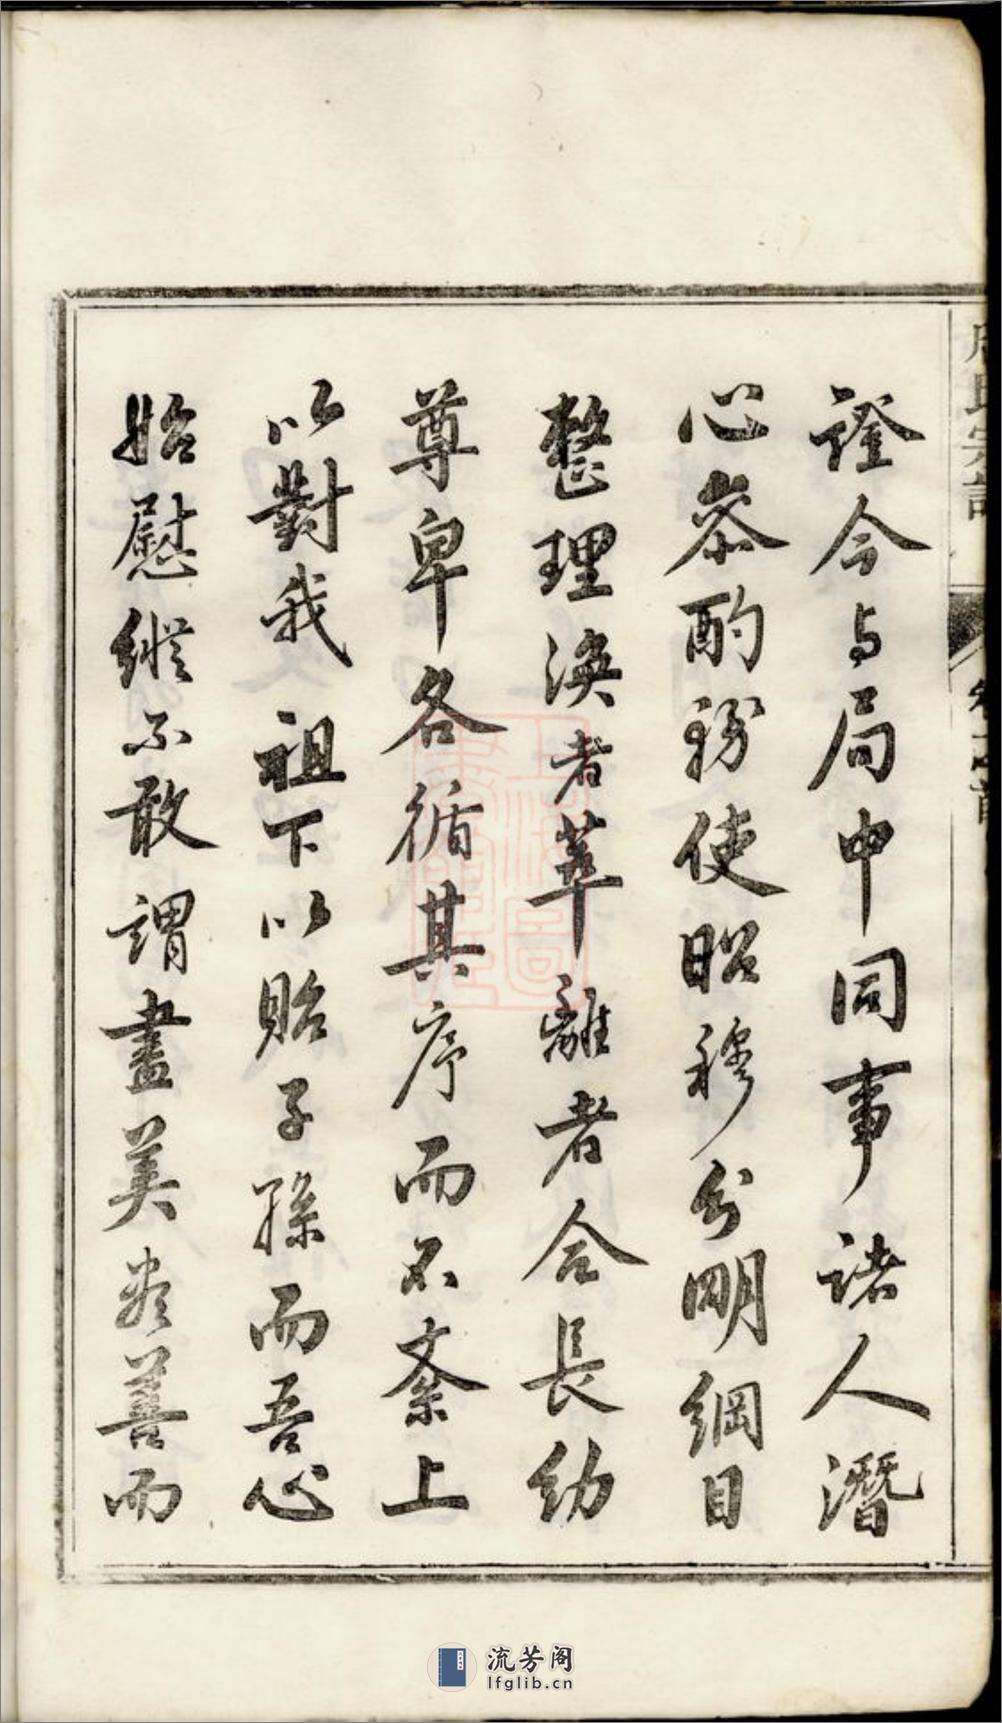 證今与局中同事諸人潛
心叅酌務使昭穆分明綱目
整理渙者萃離者合長幼
尊卑各循其序而不紊上
以對我祖下以貽子孫而吾心
始慰縱不敢謂盡美盡善而
流芳阁
lfglib.cn